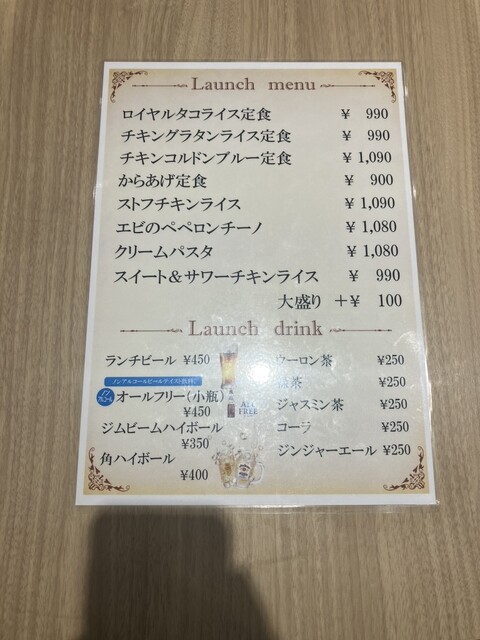 Launch menu
ロイヤルタコライス定食 ¥ 990
チキングラタンライス定食 ¥ 990
チキンコルドンブルー定食 ¥ 1,090
からあげ定食 ¥ 900
ストフチキンライス ¥ 1,090
エビのペペロンチーノ ¥ 1,080
クリームパスタ ¥ 1,080
スイート&サワーチキンライス ¥ 990
大盛り +¥ 100
Launch drink
ランチビール ¥450
ノンアルコールビールテイスト飲料
ノンアルコール オールフリー(小瓶)
¥450
ALL FREE
ジムビームハイボール
¥350
角ハイボール
¥400
ウーロン茶 ¥250
茶 ¥250
ジャスミン茶 ¥250
コーラ ¥250
ジンジャーエール ¥250